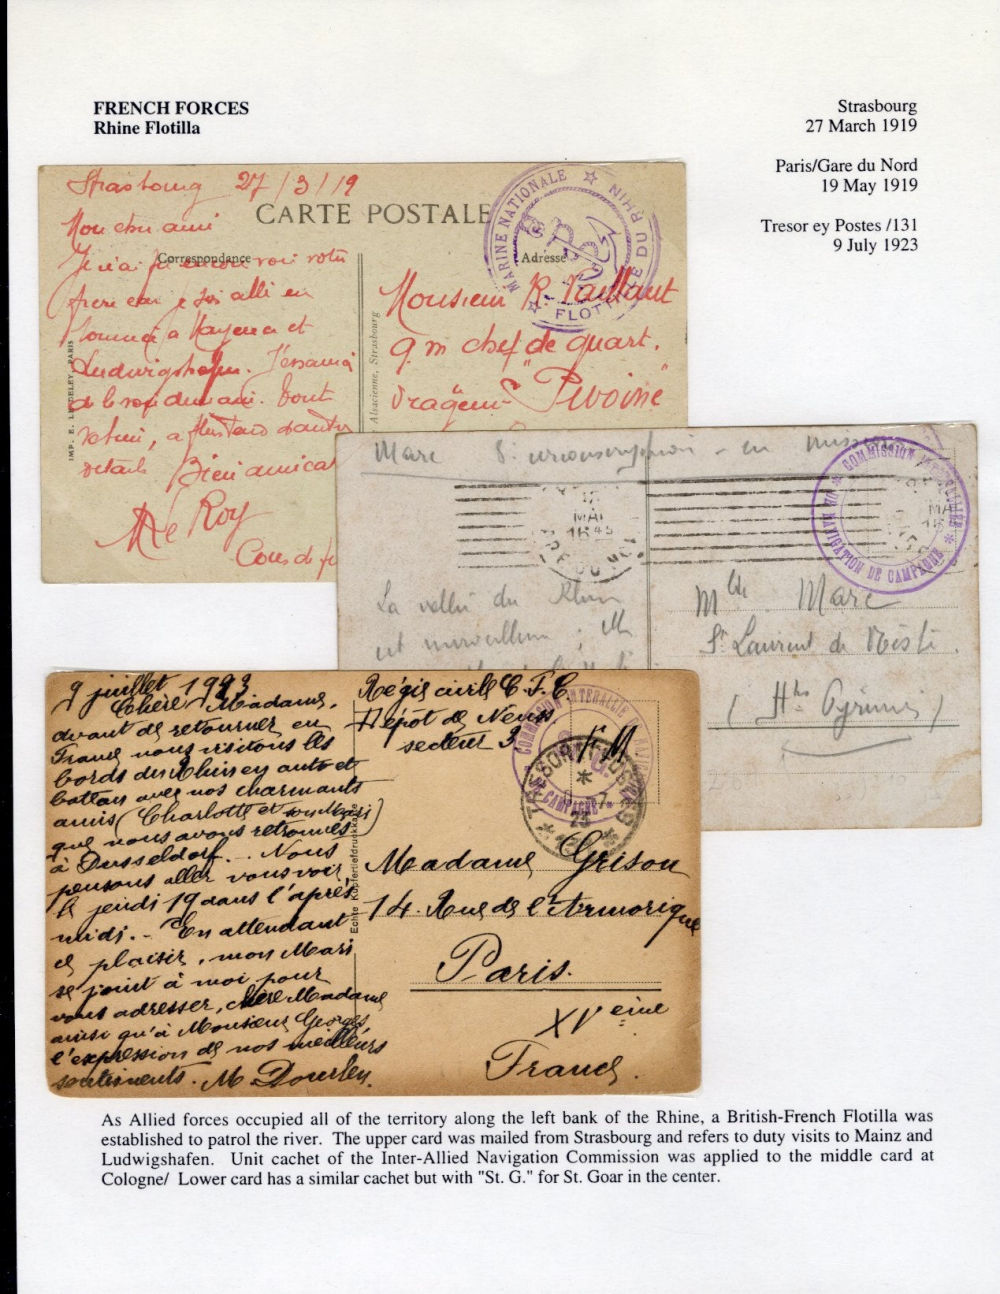 FRENCH FORCES
Rhine Flotilla
Strasbourg
27 March 1919
Paris/Gare du Nord
19 May 1919
Tresor ey Postes /131
9 July 1923
Strasbourg 27/3/19
CARTE POSTALE
Mon cher ami
Correspondance
Adresse
MARINE NATIONALE ☆ FLOTTILLE DU RHIN ☆
Je n'ai pu encore voir votre
frère car je suis allé en
tournée à Mayence et
Ludwigshafen. J'essaierai
de le voir demain.
détails Bien amical
Roy
Monsieur R. Vaillant
q. m chef de quart.
Dragueur "Pivoine"
IMP. E. PARIS
Alsacienne, Strasbourg
Marc en
MAI
16 45
MAI
16
COMMISSION
DE NAVIGATION DE CAMPAGNE
La vallée du Rhin
est merveilleuse
Mlle Marc
St Laurent de Neste
(Htes Pyrénées)
9 juillet 1923
Chère Madame,
avant de retourner en
France nous visitons les
bords du Rhin en auto et
bateau avec nos charmants
amis (Charlotte et son Mari)
que nous avons retrouvés
à Dusseldorf. Nous
pensons aller vous voir
le jeudi 19 dans l'après
midi. - En attendant
ce plaisir, mon Mari
se joint à moi pour
vous adresser, chère Madame
ainsi qu'à Monsieur Georges
l'expression de nos meilleurs
sentiments. M Dourlen.
Régie civile C.F.C.
Dépôt de Neuss
secteur 3
F.M.
COMMISSION INTERALLIÉE DE NAVIGATION
DE CAMPAGNE
TRESOR ET POSTES
9 - 7
23
Echte Kupfertiefdruckkarte
Madame Grison
14. Rue de l'Armorique
Paris.
XVeme
France.
As Allied forces occupied all of the territory along the left bank of the Rhine, a British-French Flotilla was
established to patrol the river. The upper card was mailed from Strasbourg and refers to duty visits to Mainz and
Ludwigshafen. Unit cachet of the Inter-Allied Navigation Commission was applied to the middle card at
Cologne/ Lower card has a similar cachet but with "St. G." for St. Goar in the center.